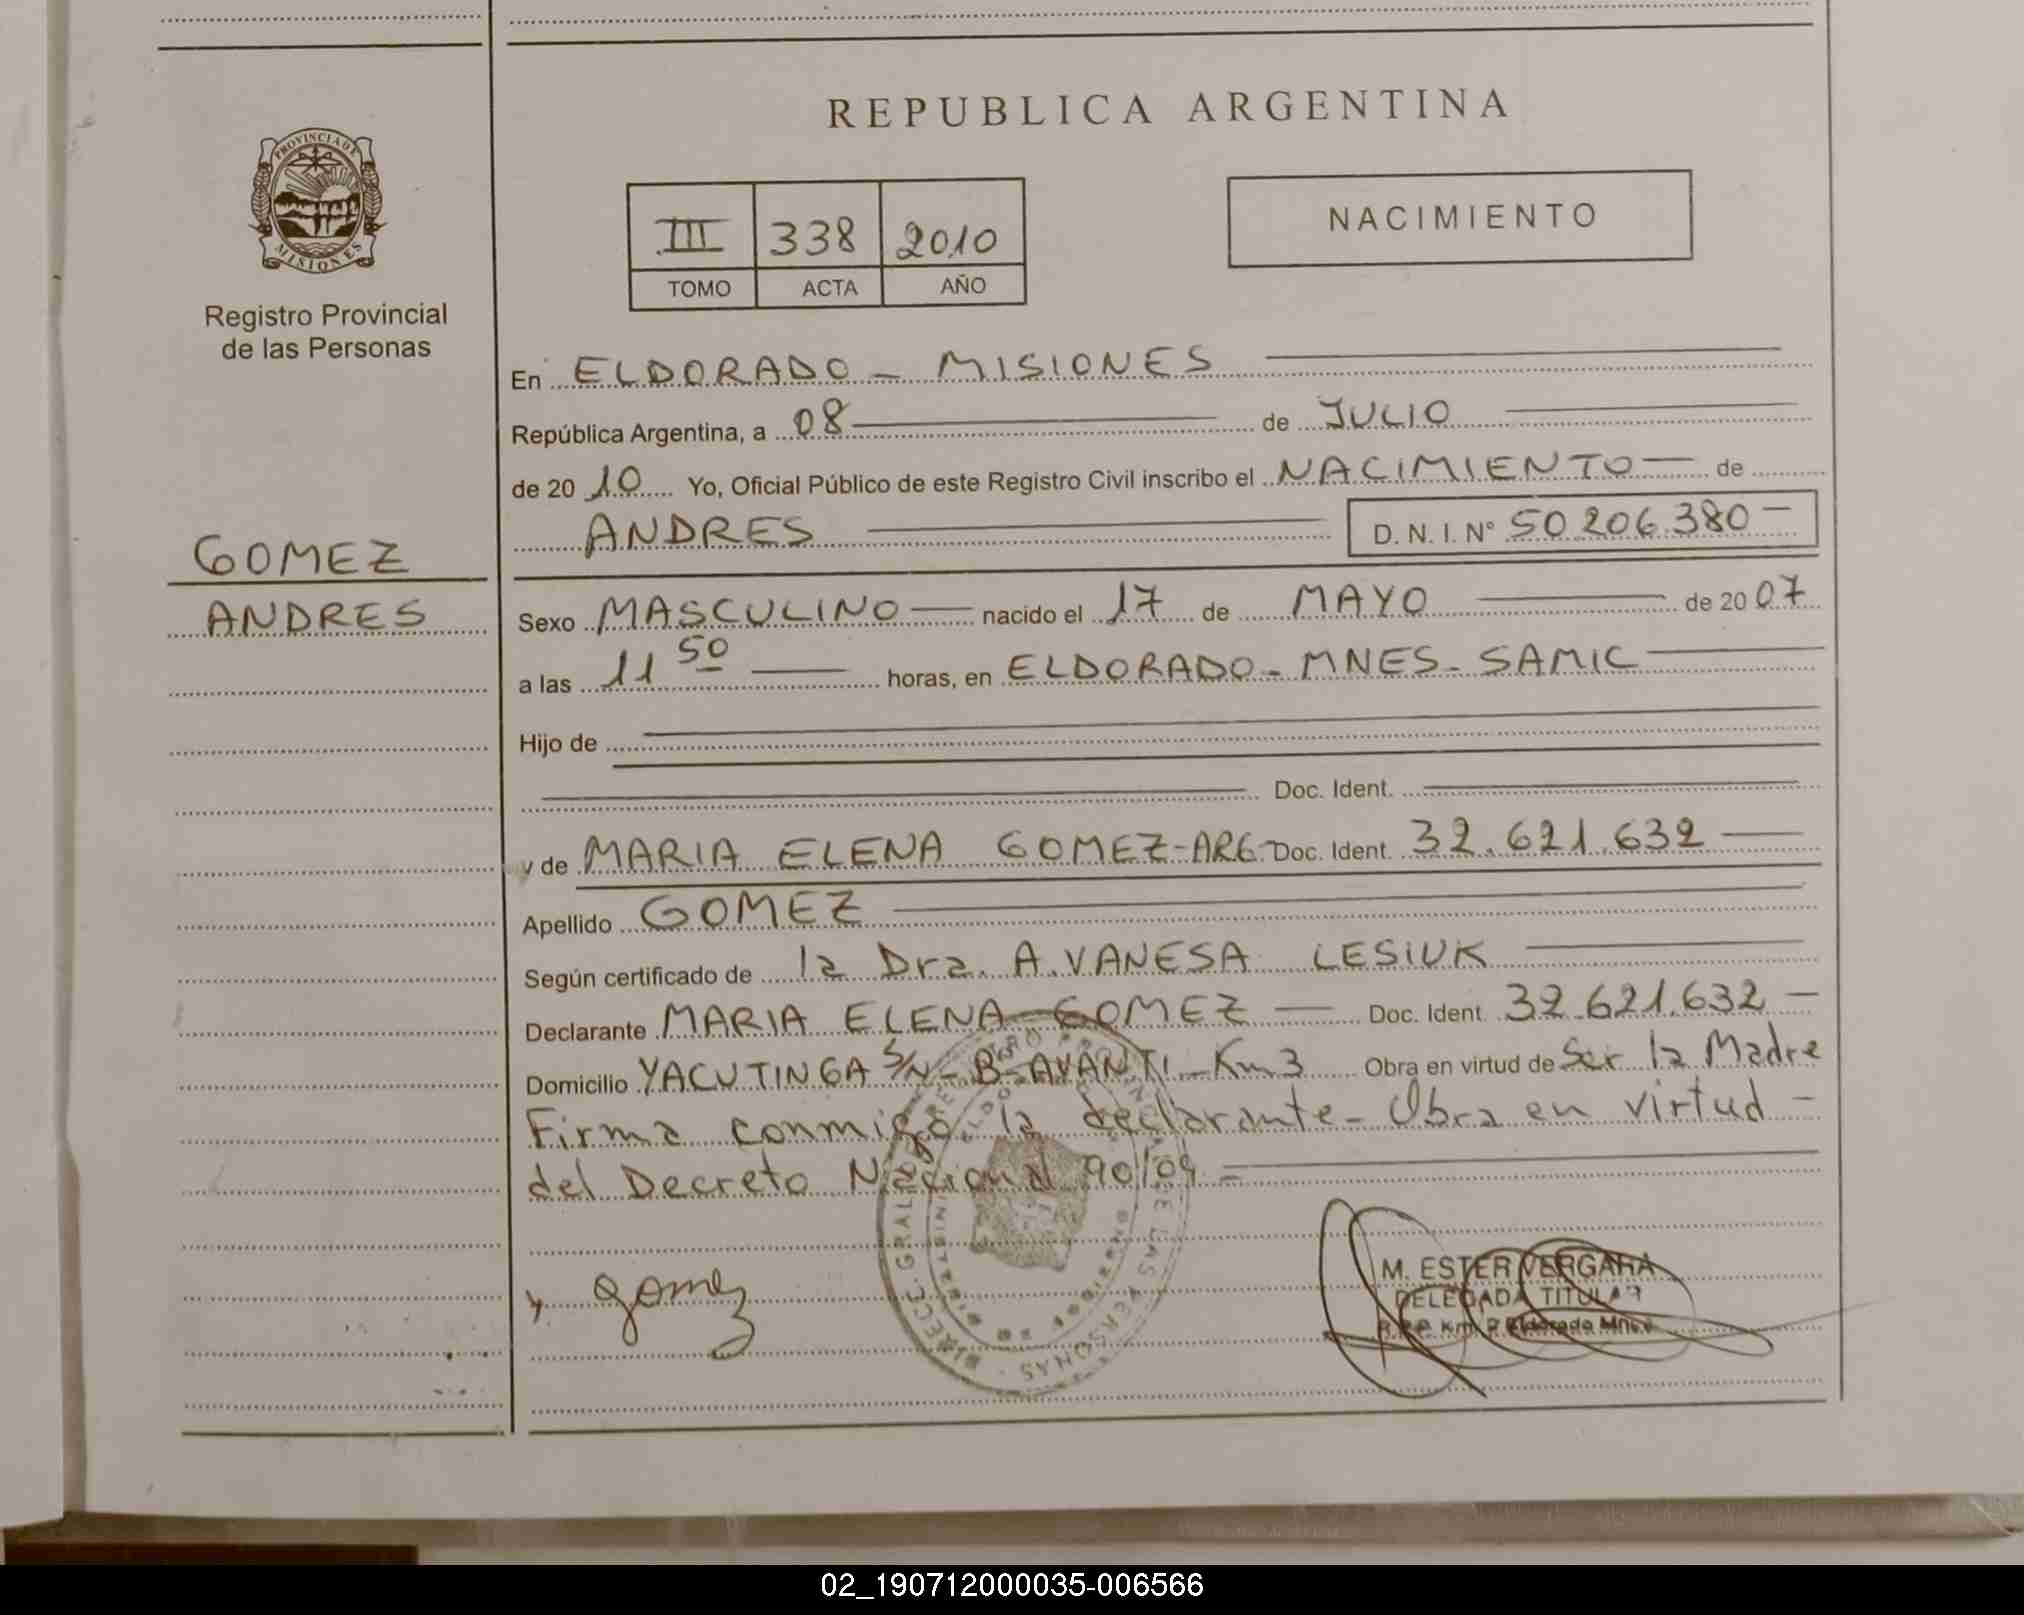 REPUBLICA ARGENTINA
PROVINCIA DE MISIONES
Registro Provincial
de las Personas
III 338 2010
TOMO ACTA AÑO
NACIMIENTO
En ELDORADO - MISIONES
República Argentina, a 08 de JULIO
de 20 10 Yo, Oficial Público de este Registro Civil inscribo el NACIMIENTO de
ANDRES D. N. I. Nº 50.206.380
GOMEZ
ANDRES
Sexo MASCULINO nacido el 17 de MAYO de 20 07
a las 11 50 horas, en ELDORADO - MNES - SAMIC
Hijo de
Doc. Ident.
y de MARIA ELENA GOMEZ-ARG- Doc. Ident. 32.621.632
Apellido GOMEZ
Según certificado de la Dra. A. VANESA LESIUK
Declarante MARIA ELENA GOMEZ Doc. Ident. 32.621.632
Domicilio YACUTINGA S/N-B-AVANTI-Km 3 Obra en virtud de Ser la Madre
Firma conmigo la declarante - Obra en virtud -
del Decreto Nacional 90/09 -
Gomez
M. ESTER VERGARA
DELEGADA TITULAR
R.P.P. Km. 9 Eldorado Mnes.
DIRECC. GRAL. DE LAS PERSONAS
02_190712000035-006566